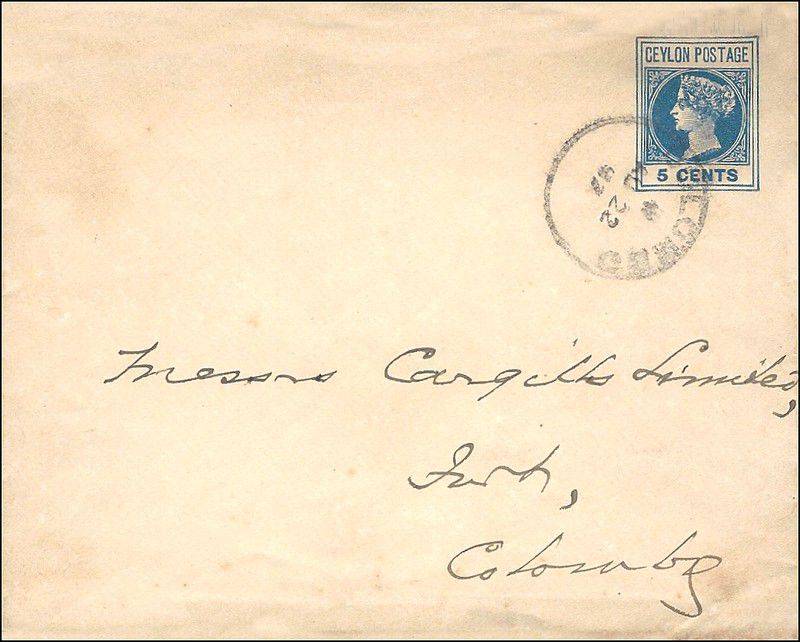 CEYLON POSTAGE
5 CENTS
22
97
Messrs Cargills Limited,
Fort,
Colombo